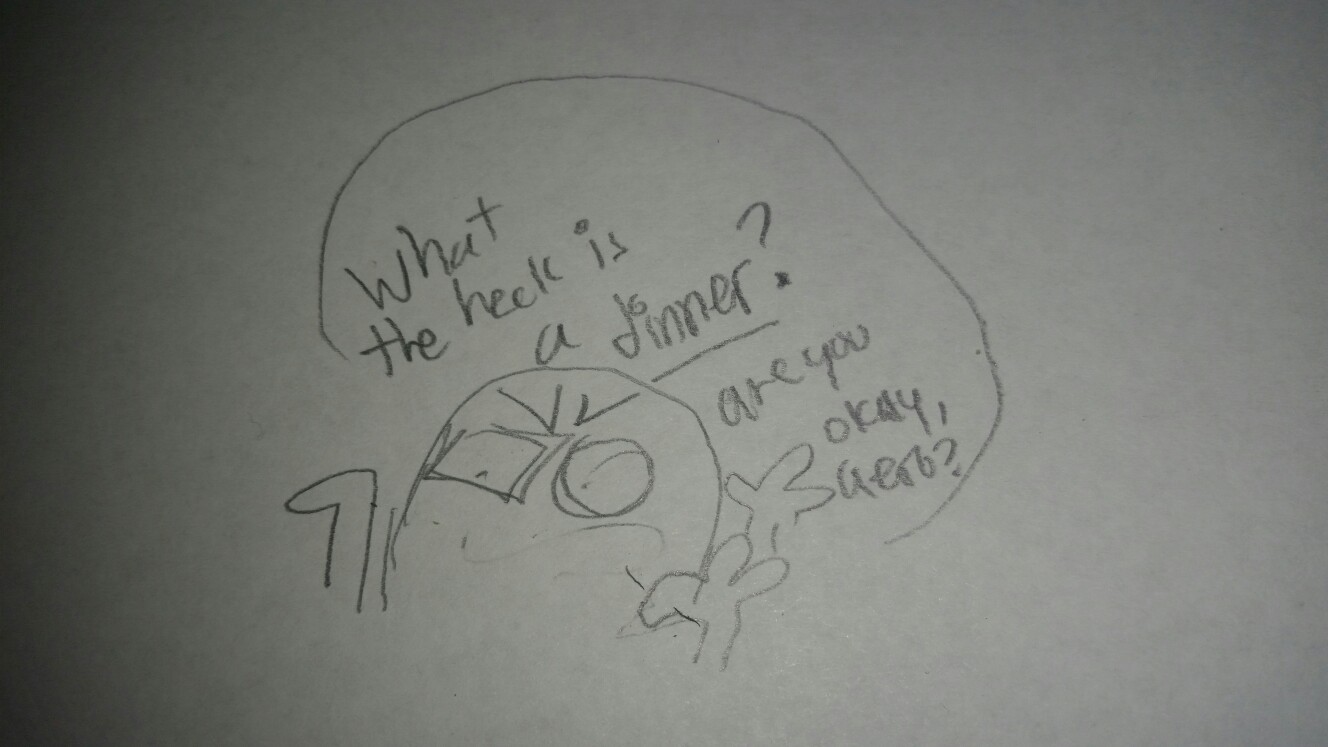 What
the heck is
a dinner?
are you
okay,
aero?